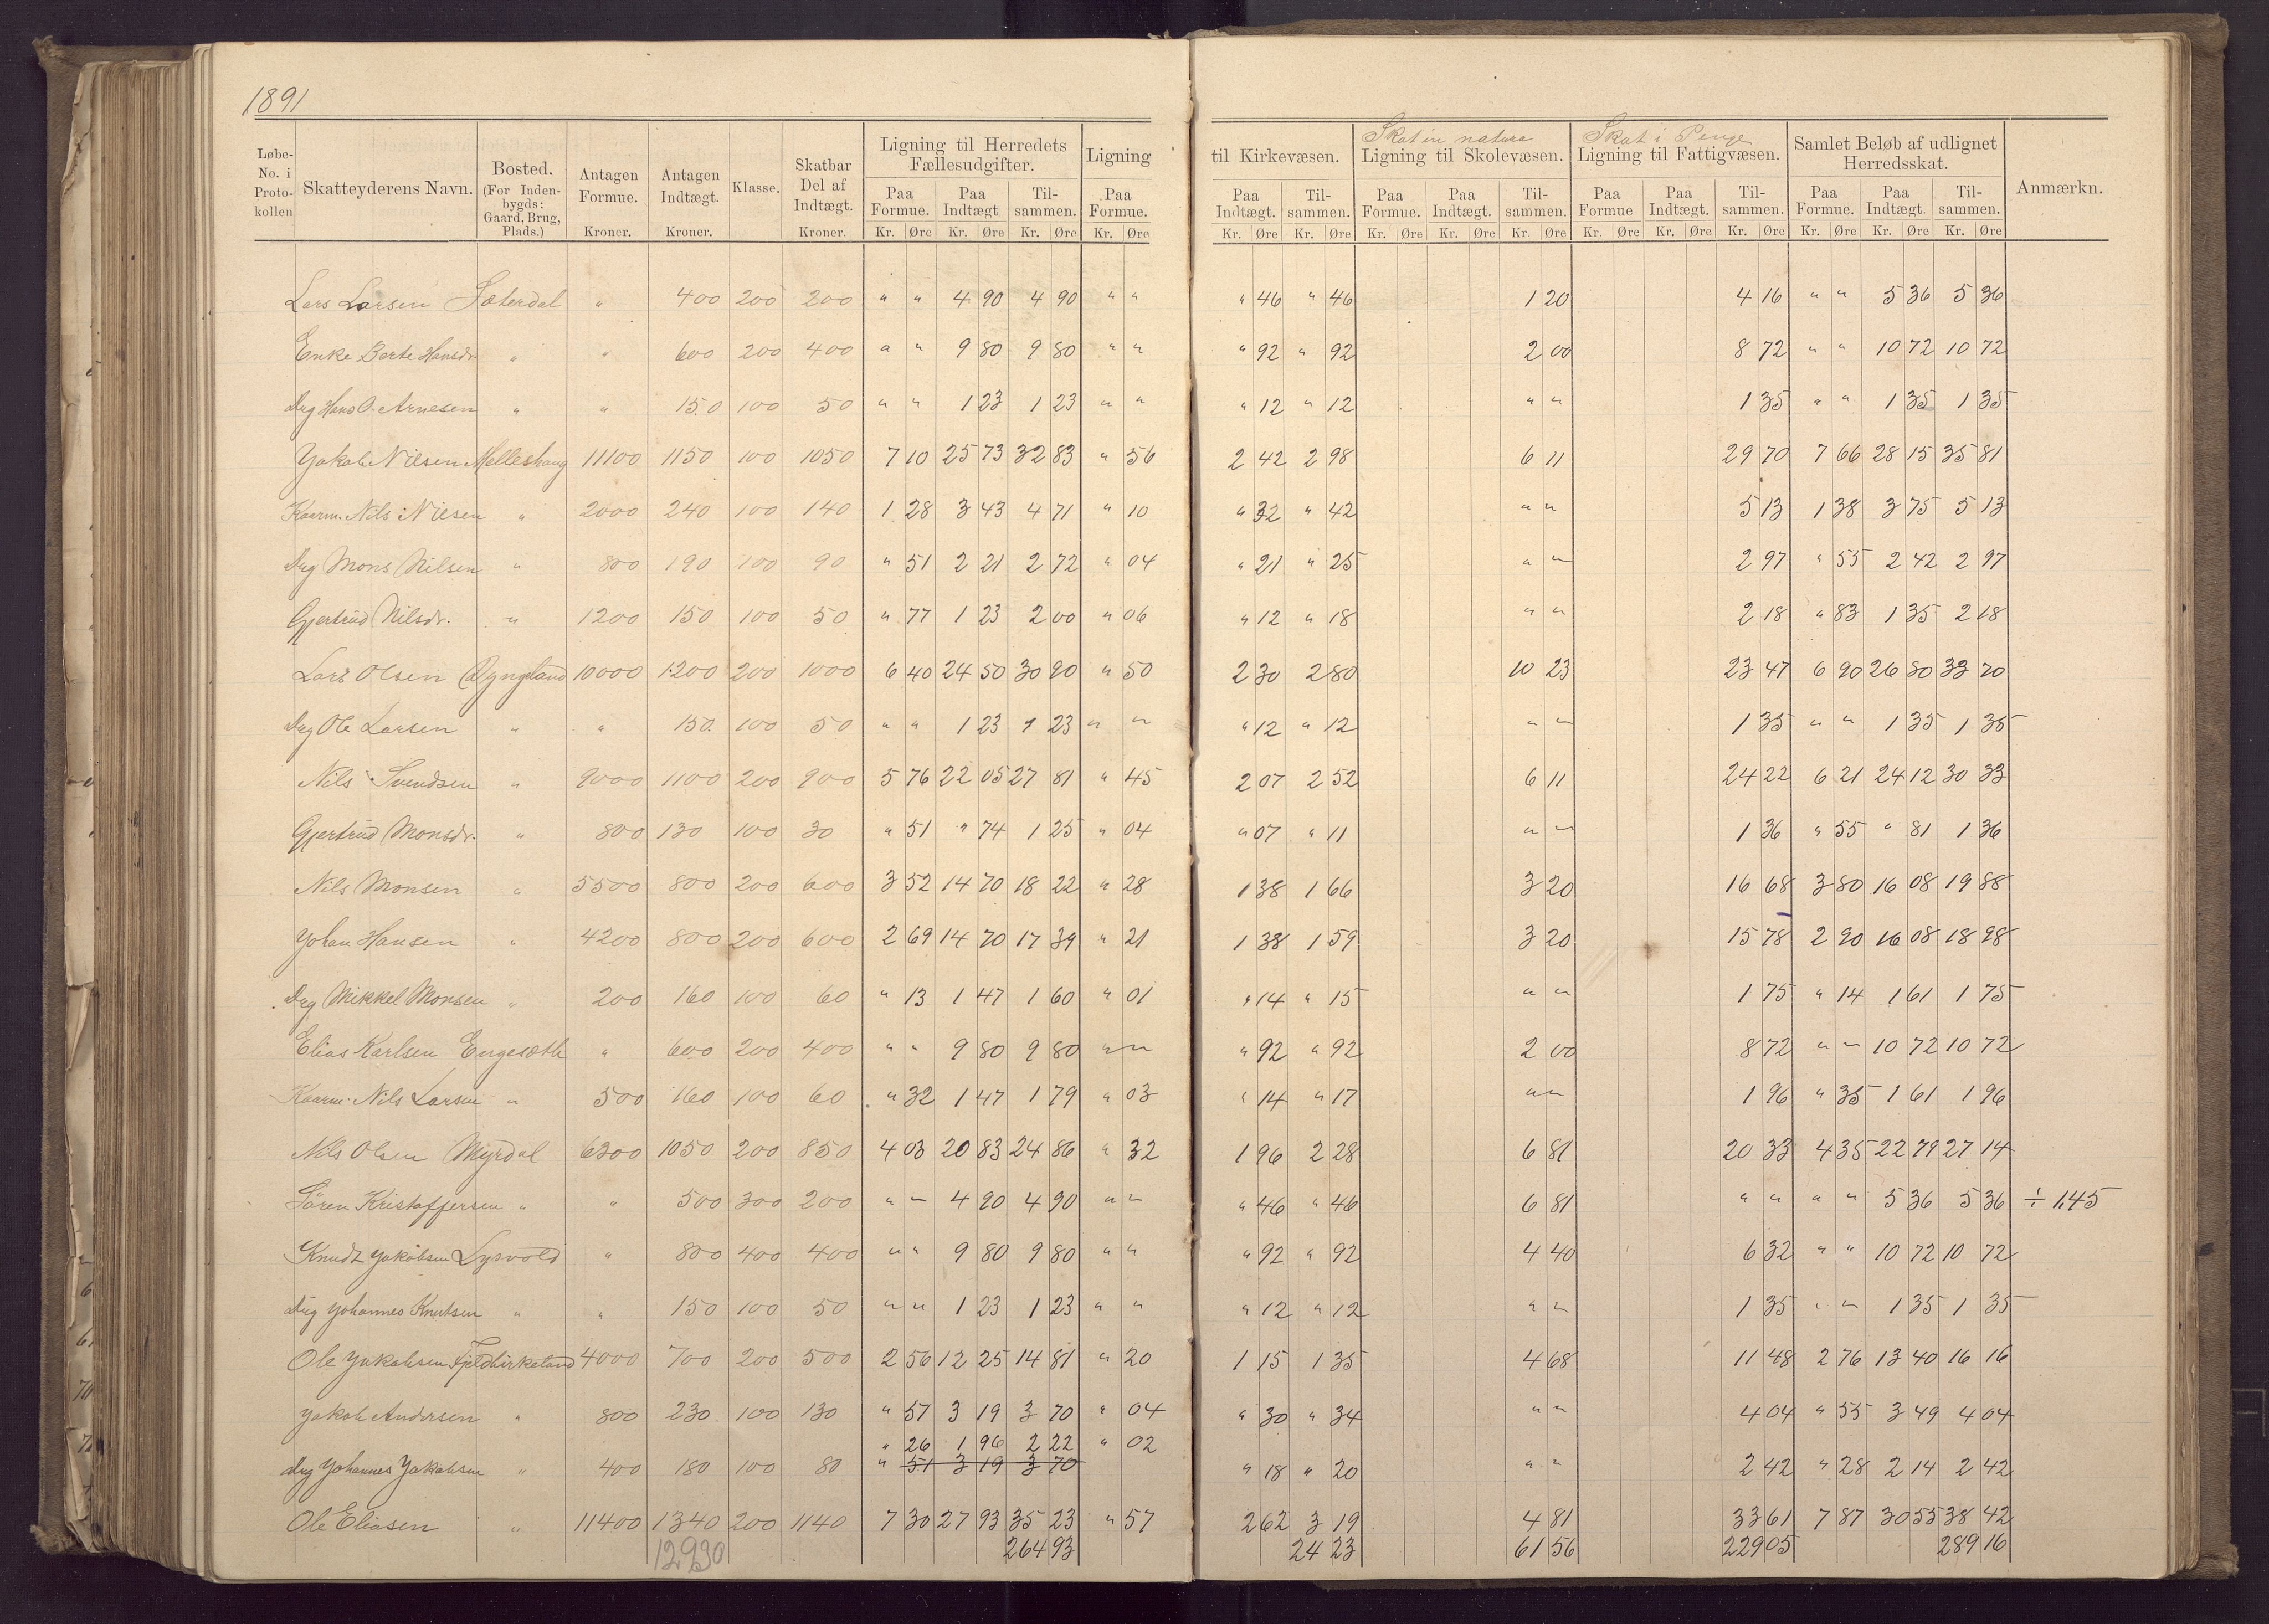 1891
Løbe-No. i Proto-kollen | Skatteyderens Navn. | Bosted. (For Inden-bygds: Gaard, Brug, Plads.) | Antagen Formue. Kroner. | Antagen Indtægt. Kroner. | Klasse. | Skatbar Del af Indtægt. Kroner. | Ligning til Herredets Fællesudgifter. | Ligning til Kirkevæsen. | Skat in natura Ligning til Skolevæsen. | Skat i Penge Ligning til Fattigvæsen. | Samlet Beløb af udlignet Herredsskat. | Anmærkn.
Paa Formue. | Paa Indtægt | Til-sammen. | Paa Formue. | Paa Indtægt. | Til-sammen. | Paa Formue. | Paa Indtægt. | Til-sammen. | Paa Formue | Paa Indtægt. | Til-sammen. | Paa Formue. | Paa Indtægt. | Til-sammen.
Kr. Øre Kr. Øre Kr. Øre Kr. Øre Kr. Øre Kr. Øre Kr. Øre Kr. Øre Kr. Øre Kr. Øre Kr. Øre Kr. Øre Kr. Øre Kr. Øre Kr. Øre
Lars Larsen Sæterdal " 400 200 200 " " 4 90 4 90 " " " 46 " 46 1 20 4 16 " " 5 36 5 36
Enke Berte Hansdr. " " 600 200 400 " " 9 80 9 80 " " " 92 " 92 2 00 8 72 " " 10 72 10 72
Drg Hans O. Arnesen " " 150 100 50 " " 1 23 1 23 " " " 12 " 12 " " 1 35 " " 1 35 1 35
Yakob Nilsen Melleshaug 11100 1150 100 1050 7 10 25 73 32 83 " 56 2 42 2 98 6 11 29 70 7 66 28 15 35 81
Kaarm. Nils Nilsen " 2000 240 100 140 1 28 3 43 4 71 " 10 " 32 " 42 " " 5 13 1 38 3 75 5 13
Drg Mons Nilsen " 800 190 100 90 " 51 2 21 2 72 " 04 " 21 " 25 " " 2 97 " 55 2 42 2 97
Gjertrud Nilsdr. " 1200 150 100 50 " 77 1 23 2 00 " 06 " 12 " 18 " " 2 18 " 83 1 35 2 18
Lars Olsen Dyngeland 10000 1200 200 1000 6 40 24 50 30 90 " 50 2 30 2 80 10 23 23 47 6 90 26 80 33 70
Drg Ole Larsen " " 150 100 50 " " 1 23 1 23 " " " 12 " 12 " " 1 35 " " 1 35 1 35
Nils Svendsen " 9000 1100 200 900 5 76 22 05 27 81 " 45 2 07 2 52 6 11 24 22 6 21 24 12 30 33
Gjertrud Monsdr. " 800 130 100 30 " 51 " 74 1 25 " 04 " 07 " 11 " " 1 36 " 55 " 81 1 36
Nils Monsen " 5500 800 200 600 3 52 14 70 18 22 " 28 1 38 1 66 3 20 16 68 3 80 16 08 19 88
Yohan Hansen " 4200 800 200 600 2 69 14 70 17 39 " 21 1 38 1 59 3 20 15 78 2 90 16 08 18 98
Drg Mikkel Monsen " 200 160 100 60 " 13 1 47 1 60 " 01 " 14 " 15 " " 1 75 " 14 1 61 1 75
Elias Karlsen Engesæth " 600 200 400 " " 9 80 9 80 " " " 92 " 92 2 00 8 72 " " 10 72 10 72
Kaarm. Nils Larsen " 500 160 100 60 " 32 1 47 1 79 " 03 " 14 " 17 " " 1 96 " 35 1 61 1 96
Nils Olsen Myrdal 6300 1050 200 850 4 03 20 83 24 86 " 32 1 96 2 28 6 81 20 33 4 35 22 79 27 14
Sören Kristoffersen " " 500 300 200 " " 4 90 4 90 " " " 46 " 46 6 81 " " " " 5 36 5 36 ÷ 1,45
Knudt Yakobsen Lysvold " 800 400 400 " " 9 80 9 80 " " " 92 " 92 4 40 6 32 " " 10 72 10 72
Drg Yohannes Knutsen " " 150 100 50 " " 1 23 1 23 " " " 12 " 12 " " 1 35 " " 1 35 1 35
Ole Yakobsen Fjeldbirkeland 4000 700 200 500 2 56 12 25 14 81 " 20 1 15 1 35 4 68 11 48 2 76 13 40 16 16
Yakob Andersen " 800 230 100 130 " 57 3 19 3 70 " 04 " 30 " 34 " " 4 04 " 55 3 49 4 04
" 26 1 96 2 22 " 02
Drg Yohannes Yakobsen " 400 180 100 80 " 51 3 19 3 70 " 18 " 20 " " 2 42 " 28 2 14 2 42
Ole Eliasen " 11400 1340 200 1140 7 30 27 93 35 23 " 57 2 62 3 19 4 81 33 61 7 87 30 55 38 42
12,930 264 93 24 23 61 56 229 05 289 16